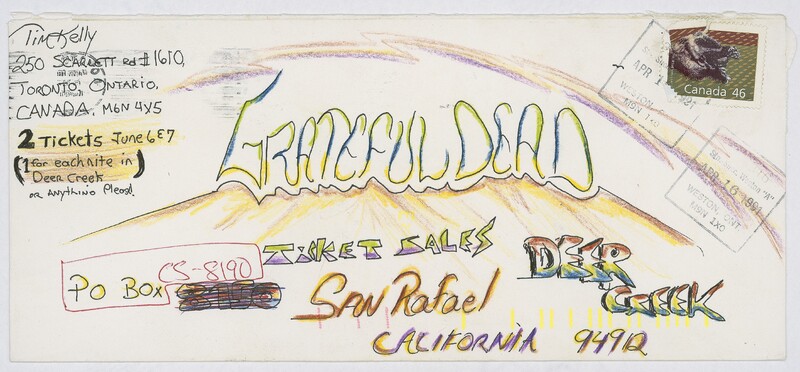 Tim Kelly
250 SCARLETT Rd #1610,
TORONTO, ONTARIO,
CANADA, M6N 4X5
2 Tickets June 6E7
(1 for each nite in
Deer Creek)
or Anything Please!
Canada 46
APR
WESTON,
M9N 1X0
"A"
APR 16 1991
WESTON, ONT
M9N 1X0
GRATEFUL DEAD
TICKET SALES
DEER
CREEK
PO BOX CS-8190
SAN Rafael
CALIFORNIA 94912